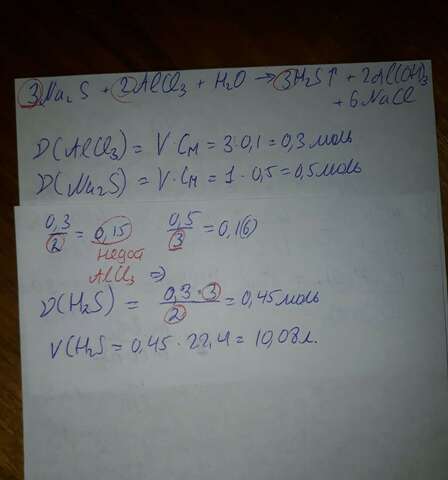 3Na₂S + 2AlCl₃ + H₂O → 3H₂S↑ + 2Al(OH)₃
+ 6NaCl
ν(AlCl₃) = V · Cм = 3·0,1 = 0,3 моль
ν(Na₂S) = V·Cм = 1 · 0,5 = 0,5 моль
0,3/2 = 0,15 0,5/3 = 0,1(6)
Недост
AlCl₃ ⇒
ν(H₂S) = 0,3·3/2 = 0,45 моль
V(H₂S = 0,45 · 22,4 = 10,08 л.